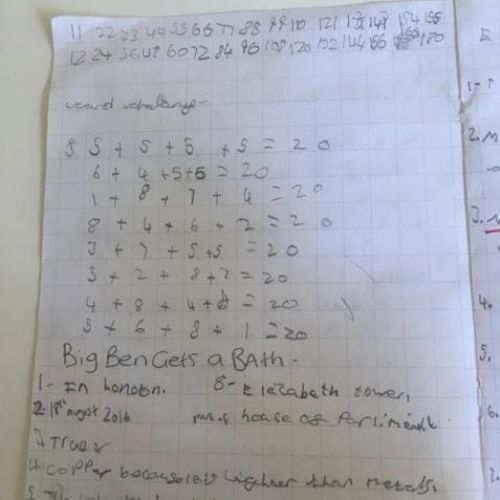 11 22 33 44 55 66 77 88 99 110 121 132 143 154 165
12 24 36 48 60 72 84 96 108 120 132 144 156 168 180
word challenge -
5 + 5 + 5 + 5 = 20
6 + 4 + 5 + 5 = 20
1 + 8 + 7 + 4 = 20
8 + 4 + 6 + 2 = 20
3 + 7 + 5 + 5 = 20
3 + 2 + 8 + 7 = 20
4 + 8 + 4 + = 20
5 + 6 + 8 + 1 = 20
Big Ben Gets a BAth -
1- In London. 8- Elezabath tower,
2. 18th august 2016 house of Parliment.
3. True
4. copper lighter than metals.
5.
1-
2. M
3.
4.
5.
6.